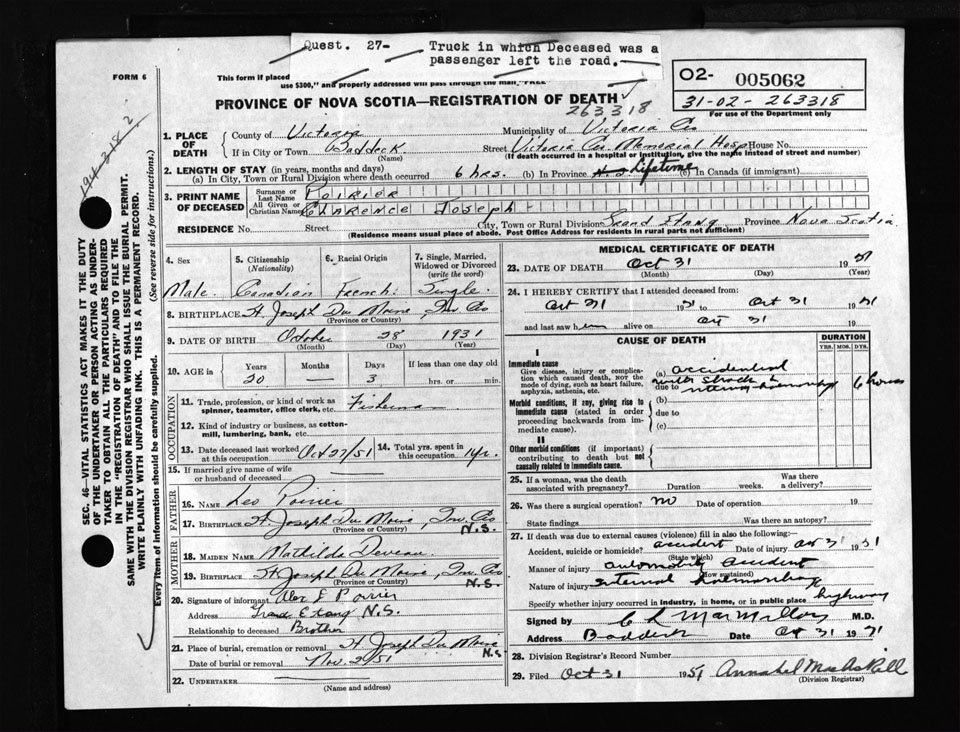 Quest. 27- Truck in which Deceased was a
passenger left the road.
FORM 6
This form if placed
use $300," and properly addressed will pass through the mail "FREE"
O2- 005062
31-02-263318
For use of the Department only
PROVINCE OF NOVA SCOTIA—REGISTRATION OF DEATH
263318
1. PLACE OF DEATH
County of Victoria Municipality of Victoria Co
If in City or Town Baddeck Street Victoria Co. Memorial Hosp House No.
(Name) (If death occurred in a hospital or institution, give the name instead of street and number)
2. LENGTH OF STAY (in years, months and days)
(a) In City, Town or Rural Division where death occurred 6 hrs. (b) In Province Lifetime (c) In Canada (if immigrant)
3. PRINT NAME OF DECEASED
Surname or Last Name Poirier
All Given or Christian Names Clarence Joseph
RESIDENCE No. Street City, Town or Rural Division Grand Etang Province Nova Scotia
(Residence means usual place of abode. Post Office Address for residents in rural parts not sufficient)
4. Sex 5. Citizenship (Nationality) 6. Racial Origin 7. Single, Married, Widowed or Divorced (write the word)
Male Canadian French Single
8. BIRTHPLACE St. Joseph Du Moine, Inv. Co
(Province or Country)
9. DATE OF BIRTH October 28 1931
(Month) (Day) (Year)
10. AGE in Years Months Days If less than one day old
20 3 hrs. or min.
OCCUPATION
11. Trade, profession, or kind of work as spinner, teamster, office clerk, etc. Fisherman
12. Kind of industry or business, as cotton-mill, lumbering, bank, etc.
13. Date deceased last worked at this occupation Oct 27/51 14. Total yrs. spent in this occupation 1 yr.
15. If married give name of wife or husband of deceased
FATHER
16. NAME Leo Poirier
17. BIRTHPLACE St. Joseph Du Moine, Inv. Co N.S.
(Province or Country)
MOTHER
18. MAIDEN NAME Mathilda Deveau
19. BIRTHPLACE St Joseph Du Moine, Inv. Co N.S.
(Province or Country)
20. Signature of informant Alex J Poirier
Address Grand Etang N.S.
Relationship to deceased Brother
21. Place of burial, cremation or removal St Joseph Du Moine N.S
Date of burial or removal Nov. 2/51
22. UNDERTAKER
(Name and address)
MEDICAL CERTIFICATE OF DEATH
23. DATE OF DEATH Oct 31 1951
(Month) (Day) (Year)
24. I HEREBY CERTIFY that I attended deceased from:
Oct 31 1951 to Oct 31 1951
and last saw him alive on Oct 31 19
CAUSE OF DEATH
DURATION
YRS. MOS. DYS.
I
Immediate cause
Give disease, injury or complication which caused death, NOT the mode of dying, such as heart failure, asphyxia, asthenia, etc.
(a) accidental
due to with shock & internal haemorrhage 6 hours
Morbid conditions, if any, giving rise to immediate cause (stated in order proceeding backwards from immediate cause).
(b)
due to
(c)
II
Other morbid conditions (if important) contributing to death but not causally related to immediate cause.
25. If a woman, was the death associated with pregnancy? Duration weeks. Was there a delivery?
26. Was there a surgical operation? no Date of operation 19
State findings Was there an autopsy?
27. If death was due to external causes (violence) fill in also the following:—
Accident, suicide or homicide? accident Date of injury Oct 31 1951
(State which)
Manner of injury automobile accident
(How sustained)
Nature of injury internal haemorrhage
Specify whether injury occurred in industry, in home, or in public place highway
Signed by C L MacMillan M.D.
Address Baddeck Date Oct 31 1951
28. Division Registrar's Record Number
29. Filed Oct 31 1951 Annabel MacAskill
(Division Registrar)
SEC. 46—VITAL STATISTICS ACT MAKES IT THE DUTY
OF THE UNDERTAKER OR PERSON ACTING AS UNDER-
TAKER TO OBTAIN ALL THE PARTICULARS REQUIRED
IN THE "REGISTRATION OF DEATH" AND TO FILE THE
SAME WITH THE DIVISION REGISTRAR WHO SHALL ISSUE THE BURIAL PERMIT.
WRITE PLAINLY WITH UNFADING INK. THIS IS A PERMANENT RECORD.
Every item of information should be carefully supplied. (See reverse side for instructions.)